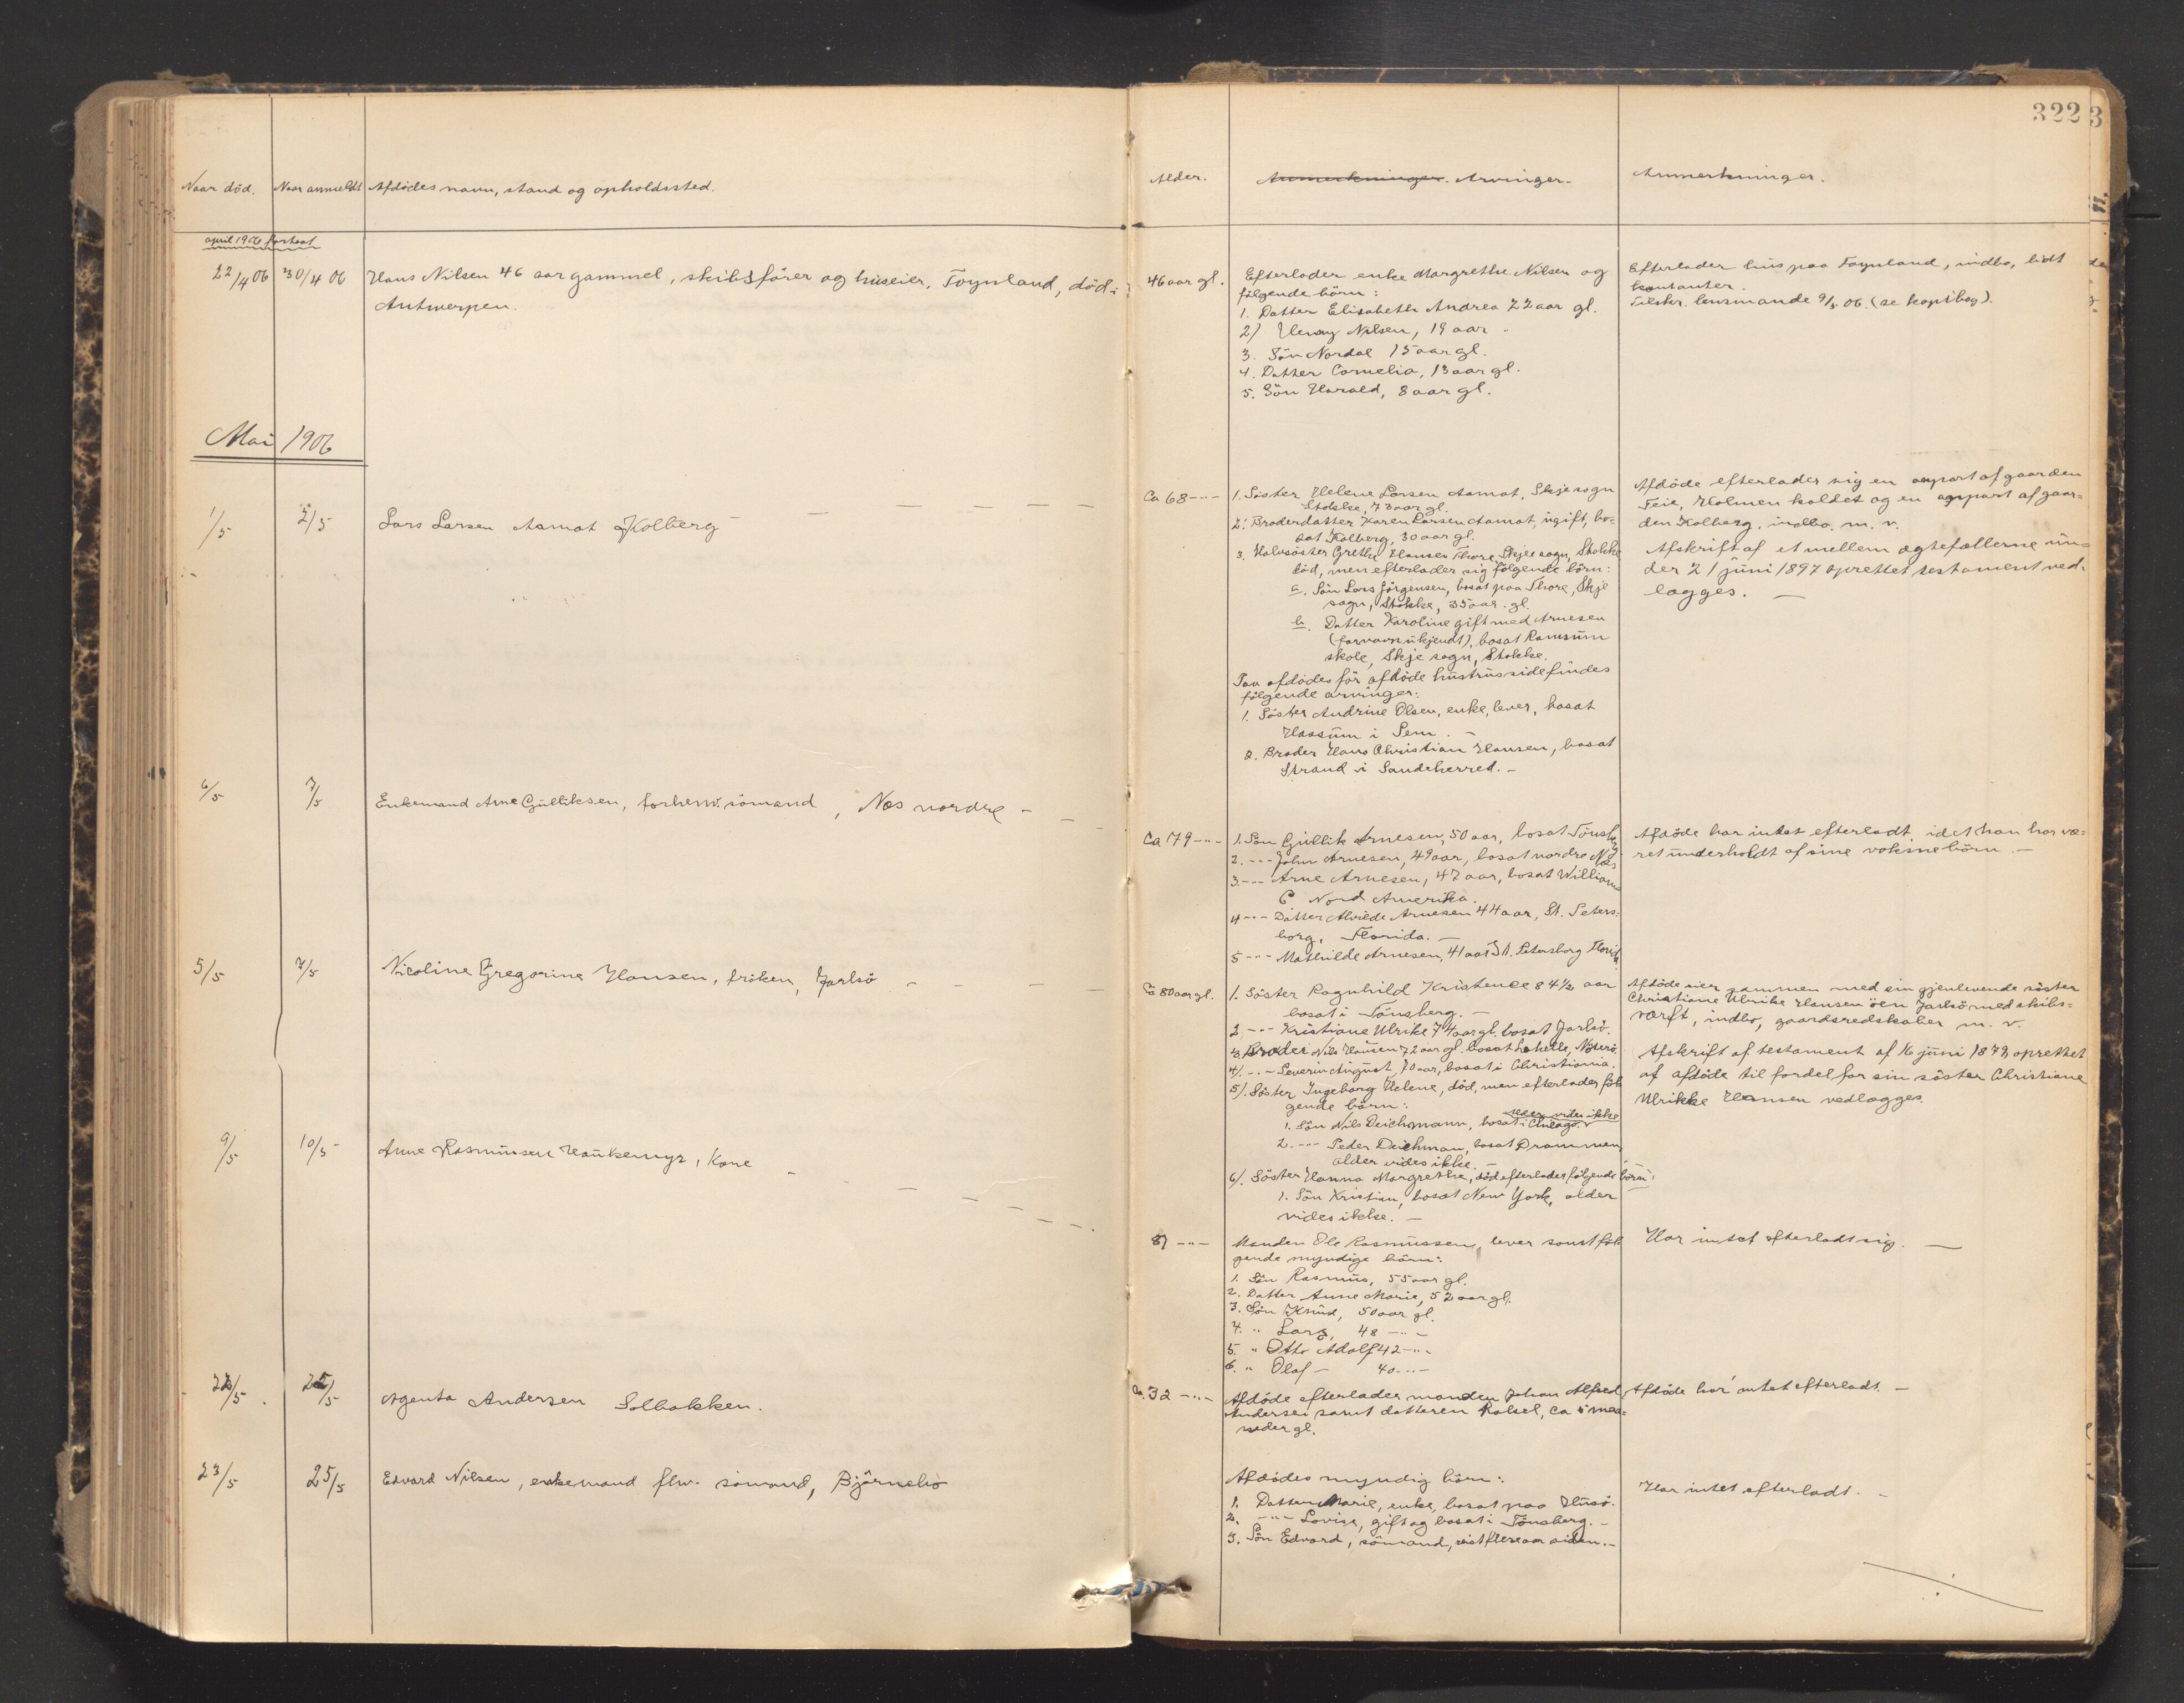 322
3
Naar död.
Naar anmeldt
Afdödes navn, stand og opholdssted.
april 1906 fortsat
22/4 06
30/4 06
Hans Nilsen 46 aar gammel, skibsförer og huseier, Toynland, död i
Antwerpen.
Mai 1906
1/5
2/5
Lars Larsen Aamot Kolberg
6/5
7/5
Enkemand Arne Gulliksen, forhenv. sömand, Nes nordre –
5/5
7/5
Nicoline Gregorine Hansen, fröken, Jarlsö
9/5
10/5
Anne Rasmussen Haukemyr, Kone
22/5
25/5
Agenta Andersen Solbakken.
23/5
25/5
Edvard Nilsen, enkemand flv. sömand, Björnebo
Alder.
Anmerkninger. Arvinger.
Anmerkninger.
46 aar gl.
Efterlader enke Margrethe Nilsen og
följende börn:
1. Datter Elisabeth Andrea 22 aar gl.
2) Henry Nilsen, 19 aar "
3. Sön Nordal 15 aar gl.
4. Datter Cornelia, 13 aar gl.
5. Sön Harald, 8 aar gl.
Efterlader hus paa Toynland, indbo, lidt
kontanter.
lensmande 9/5 06. (se kopibog).
Ca 68 – " –
1. Söster Helene Larsen Aamot, Skjee sogn
Stokke, 73 aar gl.
2. Broderdatter Karen Larsen Aamot, ugift, bo-
sat Kolberg, 30 aar gl.
3. Halvsöster Grethe Hansen Thore, Skjee sogn, Stokke
död, men efterlader sig följende börn:
a. Sön Lars Jörgensen, bosat paa Thore, Skje
sogn, Stokke, 35 aar gl.
b. Datter Karoline gift med Arnesen
(fornavn ukjendt), bosat Ramsum
skole, Skje sogn, Stokke.
Paa afdödes för afdöde hustrus side findes
fölgende arvinger:
1. Söster Andrine Olsen, enke, lever, bosat
Haasum i Sem. –
2. Broder Hans Christian Hansen, bosat
Strand i Sandeherred. –
Afdöde efterlader sig en anpart af gaarden
Feie, Holmen kaldet og en anpart af gaar-
den Kolberg, indbo. m. v.
Afskrift af et mellem ægtefællerne un-
der 21 juni 1897 oprettet testament ved-
lægges. –
Ca 79 – " –
1. Sön Gullik Arnesen, 50 aar, bosat Tönsberg
2. – " – John Arnesen, 49 aar, bosat nordre Nes
3. – " – Arne Arnesen, 47 aar, bosat Williams
C Nord Amerika.
4 – " – Datter Alvilde Arnesen 44 aar, St. Peters-
borg, Florida. –
5 – " – Mathilde Arnesen, 41 aar St. Petersborg Florida
Afdöde har intet efterladt idet han har væ-
ret underholdt af sine voksne börn. –
Ca 80 aar gl.
1. Söster Ragnhild Kristence 84 1/2 aar
bosat i Tönsberg. –
2 – " – Kristiane Ulrike 74 aar gl. bosat Jarlsö.
3. Broder Nils Hansen 72 aar gl. bosat Lahelle, Nöterö.
4). – " – Severin August, 70 aar, bosat i Christiania.
5). Söster Ingeborg Helene, död, men efterlader föl-
gende börn:
1. Sön Nils Deichmann, bosat i Chicago. alder vides ikke
2. – " – Peder Deichman, bosat Drammen,
alder vides ikke. –
6). Söster Hanna Margrethe, död efterlader fölgende börn:
1. Sön Kristian, bosat New York, alder
vides ikke. –
Afdöde eier sammen med sin gjenlevende söster
Christiane Ulrikke Hansen öen Jarlsö med skibs-
værft, indbo, gaardsredskaber m. v.
Afskrift af testament af 16 juni 1879 oprettet
af afdöde til fordel for sin söster Christiane
Ulrikke Hansen vedlægges.
81 – " –
Manden Ole Rasmussen, lever samt föl-
gende myndige börn:
1. Sön Rasmus, 55 aar gl.
2. Datter Anne Marie, 52 aar gl.
3. Sön Knud, 50 aar gl.
4. " Lars, 48 – " –
5. " Otto Adolf 42 – " –
6. " Olaf – 40 – " –
Har intet efterladt sig. –
Ca. 32 – " –
Afdöde efterlader manden Johan Alfred
Andersen samt datteren Rakel, ca maa-
neder gl.
Afdöde har intet efterladt. –
Afdödes myndig börn:
1. Datter Marie, enke, bosat paa Husö.
2. – " – Lovise, gift og bosat i Tönsberg. –
3. Sön Edvard, sömand, reist flere aar siden. –
Har intet efterladt. –